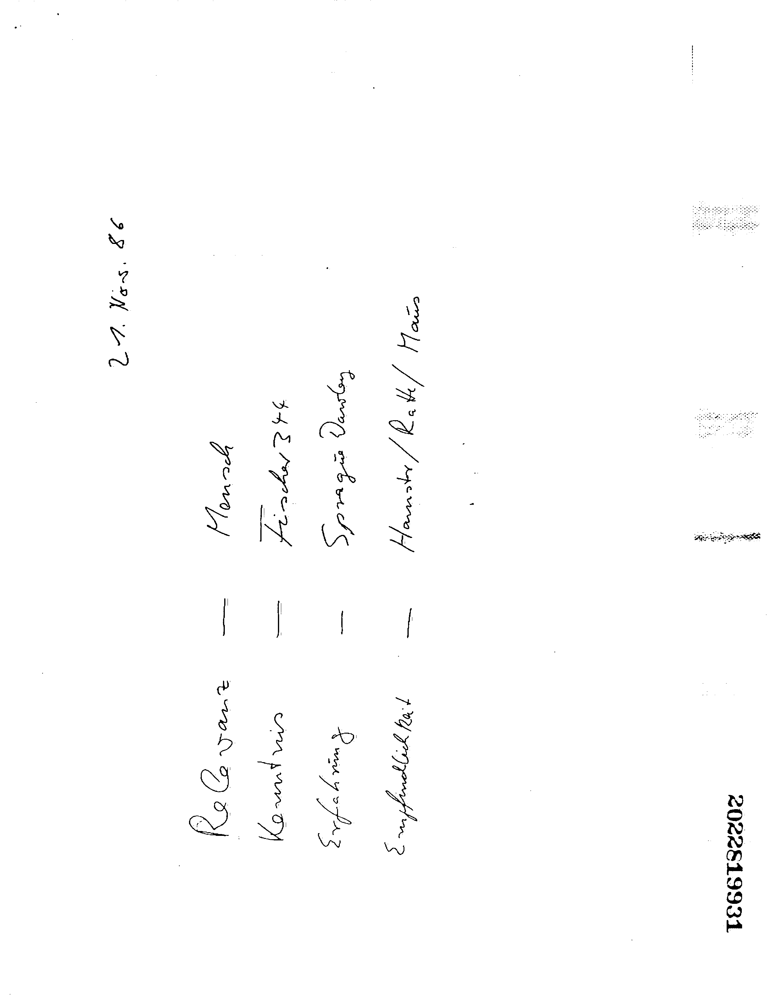 21. Nov. 86
Relevanz — Mensch
Kenntnis — Fischer 344
Erfahrung — Sprague Dawley
Empfindlichkeit — Hamster / Ratte / Maus
2022819931